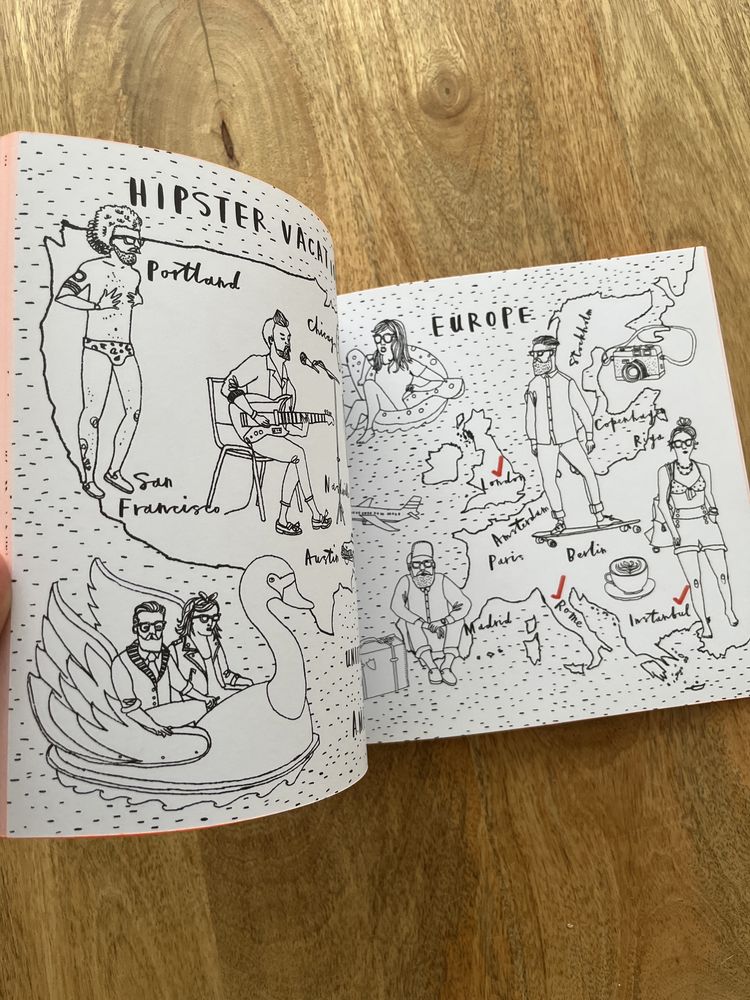 HIPSTER
Portland
San
Francisco
Austin
EUROPE
Stockholm
Copenhagen
Riga
London
Amsterdam
Paris
Berlin
Madrid
Rome
Instanbul